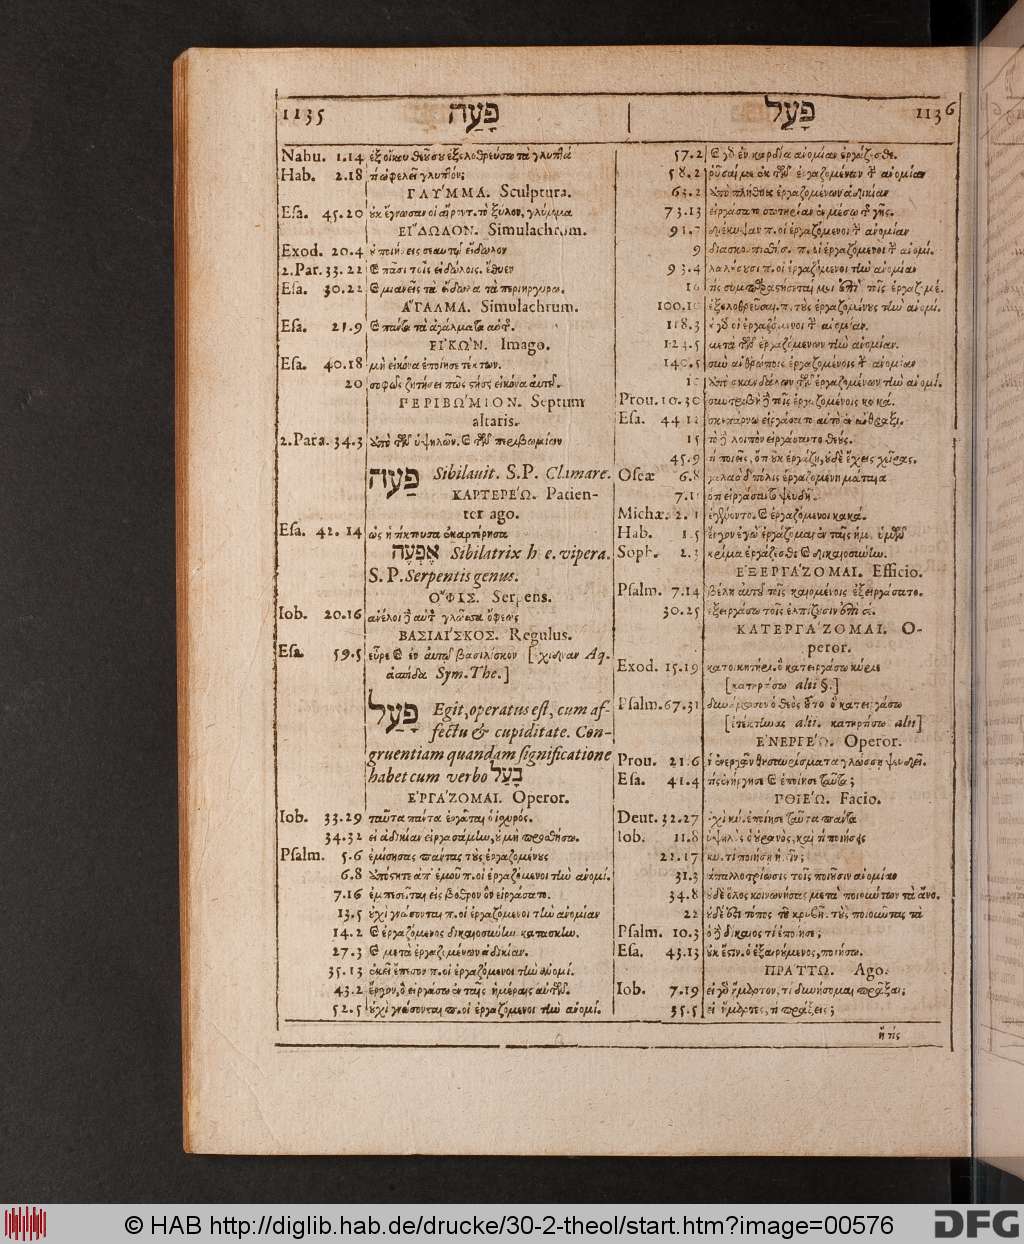 1135 פָּעָה
Nabu. 1.14 ἐξ οἴκου θεοῦ σου ἐξολοθρεύσω τὰ γλυπτά
Hab. 2.18 τί ὠφελεῖ γλυπτόν;
ΓΛΥ´ΜΜΑ. Sculptura.
Esa. 45.20 οὐκ ἔγνωσαν οἱ αἴροντ. τὸ ξύλον, γλύμμα
ΕΙ῎ΔΩΛΟΝ. Simulachrum.
Exod. 20.4 οὐ ποιήσεις σεαυτῷ εἴδωλον
2. Par. 33.22 ϗ πᾶσι τοῖς εἰδώλοις. ἔθυεν
Esa. 30.22 ϗ μιανεῖς τὰ εἴδωλα τὰ περιηργυρω.
Α῎ΓΑΛΜΑ. Simulachrum.
Esa. 21.9 ϗ πάντα τὰ ἀγάλματα αὐτ.
ΕΙΚΩ`Ν. Imago.
Esa. 40.18 μὴ εἰκόνα ἐποίησε τέκτων.
20 σοφῶς ζητήσει πῶς στήσῃ εἰκόνα αὐτοῦ.
ΠΕΡΙΒΩ´ΜΙΟΝ. Septum
altaris.
2. Para. 34.3 ἀπὸ τῶν ὑψηλῶν. ϗ τῶν περιβωμίων
פָּעָה Sibilauit. S.P. Clamare.
ΚΑΡΤΕΡΕ´Ω. Pacien-
ter ago.
Esa. 42. 14 ὡς ἡ τίκτουσα ἐκαρτέρησα
אֶפְעֶה Sibilatrix h e. vipera.
S. P. Serpentis genus.
Ο῎ΦΙΣ. Serpens.
Iob. 20.16 ἀνέλοι δὲ αὐτὸν γλῶσσα ὄφεως
ΒΑΣΙΛΙ´ΣΚΟΣ. Regulus.
Esa. 59.5 εὗρε ϗ ἐν αὐτῷ βασιλίσκον [ἔχιδναν Aq.
ἀσπίδα Sym. The.]
פָּעַל Egit, operatus est, cum af-
fectu & cupiditate. Con-
gruentiam quandam significatione
habet cum verbo בָּעַל
ΕΡΓΑ´ΖΟΜΑΙ. Operor.
Iob. 33.29 ταῦτα πάντα ἐργᾶται ὁ ἰσχυρός.
34.32 εἰ ἀδικίαν εἰργασάμην, οὐ μὴ προσθήσω.
Psalm. 5.6 ἐμίσησας πάντας τοὺς ἐργαζομένους
6.8 ἀπόστητε ἀπ' ἐμοῦ π. οἱ ἐργαζόμενοι τὴν ἀνομί.
7.16 ἐμπεσεῖται εἰς βόθρον ὃν εἰργάσατο.
13.5 οὐχὶ γνώσονται π. οἱ ἐργαζόμενοι τὴν ἀνομίαν
14.2 ϗ ἐργαζόμενος δικαιοσύνην
27.3 ϗ μετὰ ἐργαζομένων ἀδικίαν.
35.13 ἐκεῖ ἔπεσον π. οἱ ἐργαζόμενοι τὴν ἀνομί.
43.2 ἔργον, ὃ εἰργάσω ἐν ταῖς ἡμέραις αὐτῶν.
52.5 οὐχὶ γνώσονται π. οἱ ἐργαζόμενοι τὴν ἀνομί.
פָּעַל 1136
57.2 ϗ γὰρ ἐν καρδίᾳ ἀνομίαν ἐργάζεσθε.
58.2 ῥῦσαί με ἐκ τῶν ἐργαζομένων τ. ἀνομίαν
63.2 ἀπὸ πλήθους ἐργαζομένων ἀδικίαν
73.13 εἰργάσατο σωτηρίαν ἐν μέσῳ τ. γῆς.
91.7 διέκυψαν π. οἱ ἐργαζόμενοι τ. ἀνομίαν
9 διασκορπισθήσ. π. οἱ ἐργαζόμενοι τ. ἀνομί.
93.4 λαλήσουσι π. οἱ ἐργαζόμενοι τὴν ἀνομίαν
16 τίς συμπαραστήσεταί μοι ἐπὶ τοῖς ἐργαζομέ.
100.10 ἐξολοθρεῦσαι. π. τοὺς ἐργαζομένους τὴν ἀνομί.
118.3 οὐ γὰρ οἱ ἐργαζόμενοι τ. ἀνομίαν.
124.5 μετὰ τῶν ἐργαζομένων τὴν ἀνομίαν.
140.5 σὺν ἀνθρώποις ἐργαζομένοις τ. ἀνομίαν
10 ἀπὸ σκανδάλων τῶν ἐργαζομένων τὴν ἀνομί.
Prou. 10.30 συντριβὴ δὲ τοῖς ἐργαζομένοις κακά.
Esa. 44 12 σκεπάρνῳ εἰργάσατο αὐτὸ ἐν ἄνθραξι.
15 τὸ δὲ λοιπὸν εἰργάσαντο θεούς.
45.9 τί ποιεῖς, ὅτι οὐκ ἐργάζῃ, οὐδὲ ἔχεις χεῖρας.
Oseæ 6.8 γαλαὰδ πόλις ἐργαζομένη μάταια
7.1 ὅτι εἰργάσαντο ψευδῆ.
Michæ. 2. 1 ἐγένοντο. ϗ ἐργαζόμενοι κακά.
Hab. 1.5 ἔργον ἐγὼ ἐργάζομαι ἐν ταῖς ἡμέ. ὑμῶν
Soph. 2.3 κρίμα ἐργάζεσθε ϗ δικαιοσύνην.
ΕΞΕΡΓΑ´ΖΟΜΑΙ. Efficio.
Psalm. 7.14 βέλη αὐτοῦ τοῖς καιομένοις ἐξειργάσατο.
30.25 ἐξειργάσω τοῖς ἐλπίζουσιν ἐπὶ σέ.
ΚΑΤΕΡΓΑ´ΖΟΜΑΙ. O-
peror.
Exod. 15.19 κατοικητήρι. ὃ κατειργάσω κύριε
[κατηρτίσω alii §.]
Psalm. 67.31 δυνάμωσον ὁ θεὸς τοῦτο ὃ κατειργάσω
[ἐτεκτίνω alii. κατηρτίσω alii]
ΕΝΕΡΓΕ´Ω. Operor.
Prou. 21.6 ὁ ἐνεργῶν θησαυρίσματα γλώσσῃ ψευδεῖ.
Esa. 41.4 τίς ἐνήργησε ϗ ἐποίησε ταῦτα;
ΠΟΙΕ´Ω. Facio.
Deut. 32.27 οὐχὶ κύ. ἐποίησε ταῦτα πάντα
Iob. 11.8 ὑψηλὸς ὁ οὐρανὸς, καὶ τί ποιήσεις
22.17 κύ. τί ποιήσει ἡμῖν;
31.3 ἀπαλλοτρίωσις τοῖς ποιοῦσιν ἀνομίαν
34.8 οὐδὲ ὅλως κοινωνήσας μετὰ ποιούντων τὰ ἄνο.
22 οὐδὲ ἔσται τόπος τοῦ κρυβῆ. τοὺς ποιοῦντας τὰ
Psalm. 10.3 ὁ δὲ δίκαιος τί ἐποίησε;
Esa. 43.13 οὐκ ἔστιν. ὁ ἐξαιρούμενος, ποιήσω.
ΠΡΑ´ΤΤΩ. Ago.
Iob. 7.19 εἰ γὰρ ἥμαρτον, τί δυνήσομαι πρᾶξαι;
35.5 εἰ ἥμαρτες, τί πράξεις;
ἢ τίς
© HAB http://diglib.hab.de/drucke/30-2-theol/start.htm?image=00576
DFG